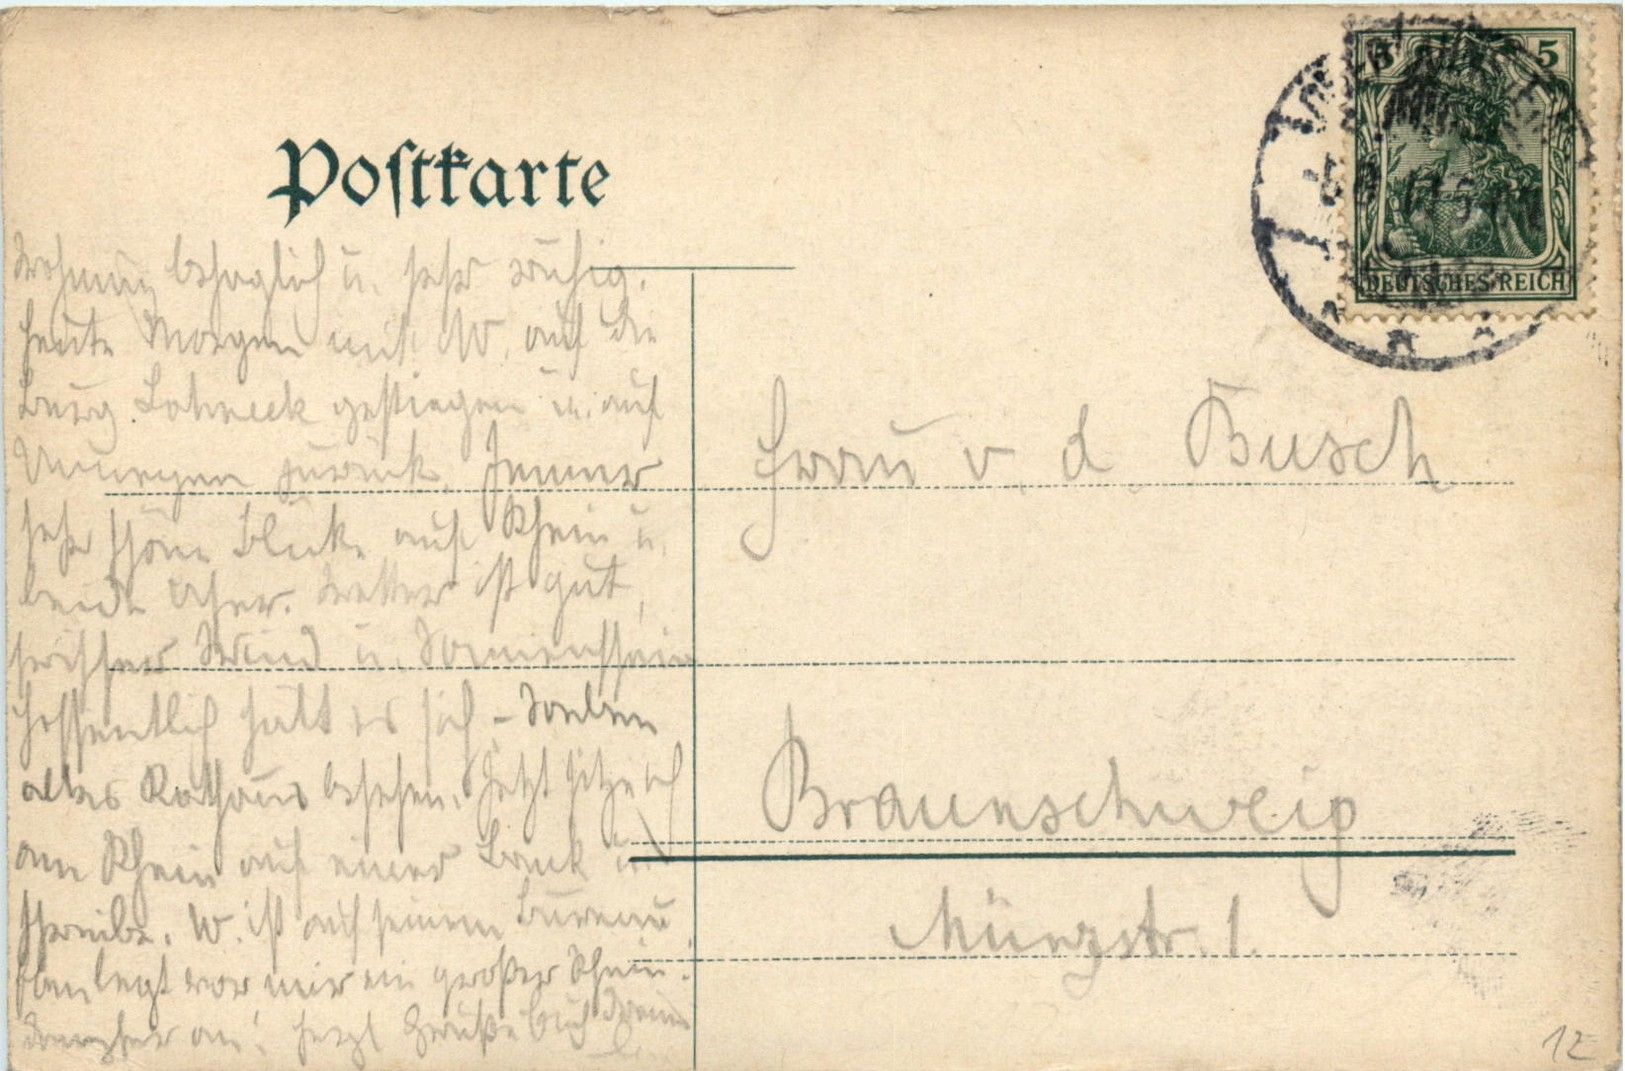 Postkarte
5 5
DEUTSCHES REICH
Wohnung behaglich u. sehr ruhig.
Heute Morgen mit W. auf die
Burg Lahneck gestiegen u. auf
Umwegen zurück. Immer
sehr schöne Blicke auf Rhein u.
beide Ufer. Wetter ist gut,
frischer Wind u. Sonnenschein
hoffentlich hält es sich – Soeben
altes Rathaus besehen. Jetzt sitze ich
am Rhein auf einer Bank u.
schreibe. W. ist auf seinem Bureau
Eben legt vor mir ein großer Rhein-
dampfer an! Herzl Grüße Euch
Frau v. d. Busch
Braunschweig
Münzstr. 1.
12